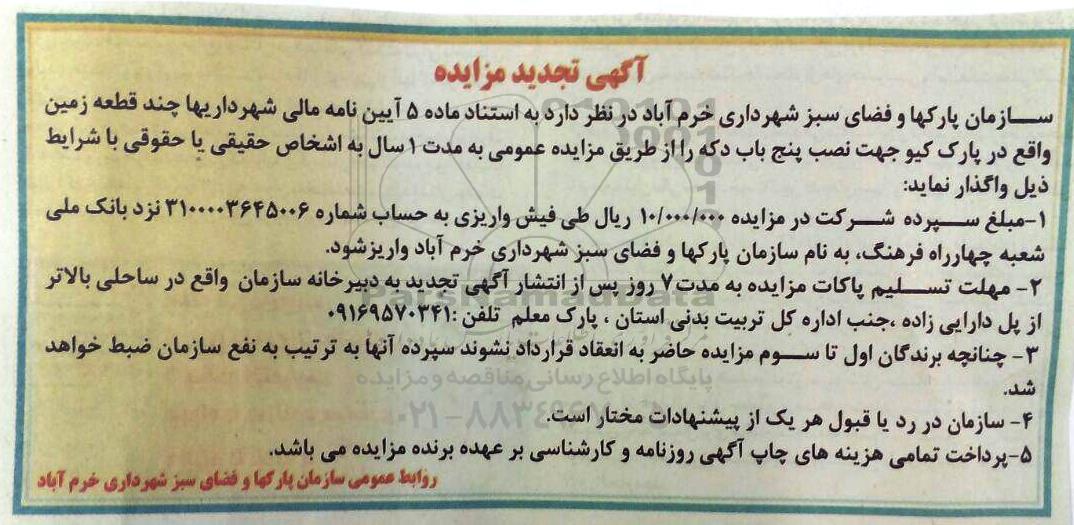 آگهی تجدید مزایده
ســازمان پارکها و فضای سبز شهرداری خرم آباد در نظر دارد به استناد ماده ۵ آیین نامه مالی شهرداریها چند قطعه زمین
واقع در پارک کیو جهت نصب پنج باب دکه را از طریق مزایده عمومی به مدت ۱ سال به اشخاص حقیقی یا حقوقی با شرایط
ذیل واگذار نماید:
۱-مبلغ سـپرده شـرکت در مزایده ۱۰/۰۰۰/۰۰۰ ریال طی فیش واریزی به حساب شماره ۳۱۰۰۰۰۳۶۴۵۰۰۶ نزد بانک ملی
شعبه چهارراه فرهنگ، به نام سازمان پارکها و فضای سبز شهرداری خرم آباد واریزشود.
۲- مهلت تسـلیم پاکات مزایده به مدت ۷ روز پس از انتشار آگهی تجدید به دبیرخانه سازمان واقع در ساحلی بالاتر
از پل دارایی زاده ،جنب اداره کل تربیت بدنی استان ، پارک معلم تلفن :۰۹۱۶۹۵۷۰۳۴۱
۳- چنانچه برندگان اول تا سـوم مزایده حاضر به انعقاد قرارداد نشوند سپرده آنها به ترتیب به نفع سازمان ضبط خواهد
شد.
۴- سازمان در رد یا قبول هر یک از پیشنهادات مختار است.
۵-پرداخت تمامی هزینه های چاپ آگهی روزنامه و کارشناسی بر عهده برنده مزایده می باشد.
روابط عمومی سازمان پارکها و فضای سبز شهرداری خرم آباد
ParsNamadData
پایگاه اطلاع رسانی مناقصه و مزایده